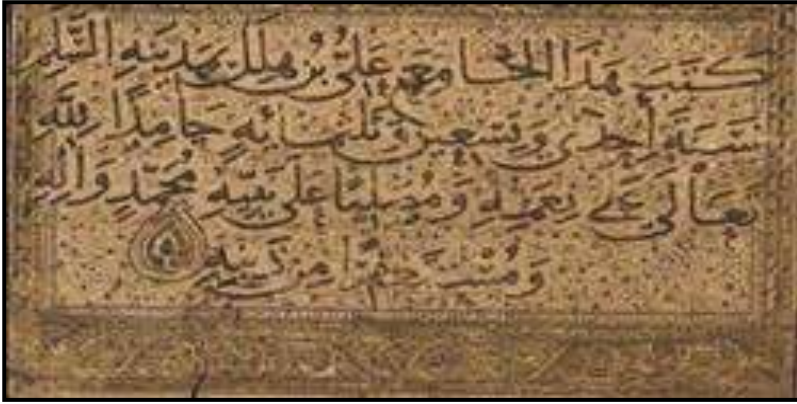 كتب هذا الجامع علي بن هلل بمدينة السلم
سنة إحدى وتسعين وثلثمائة حامدا لله
تعالى على نعمه ومصليا على نبيه محمد وآله
ومستغفرا من ذنبه